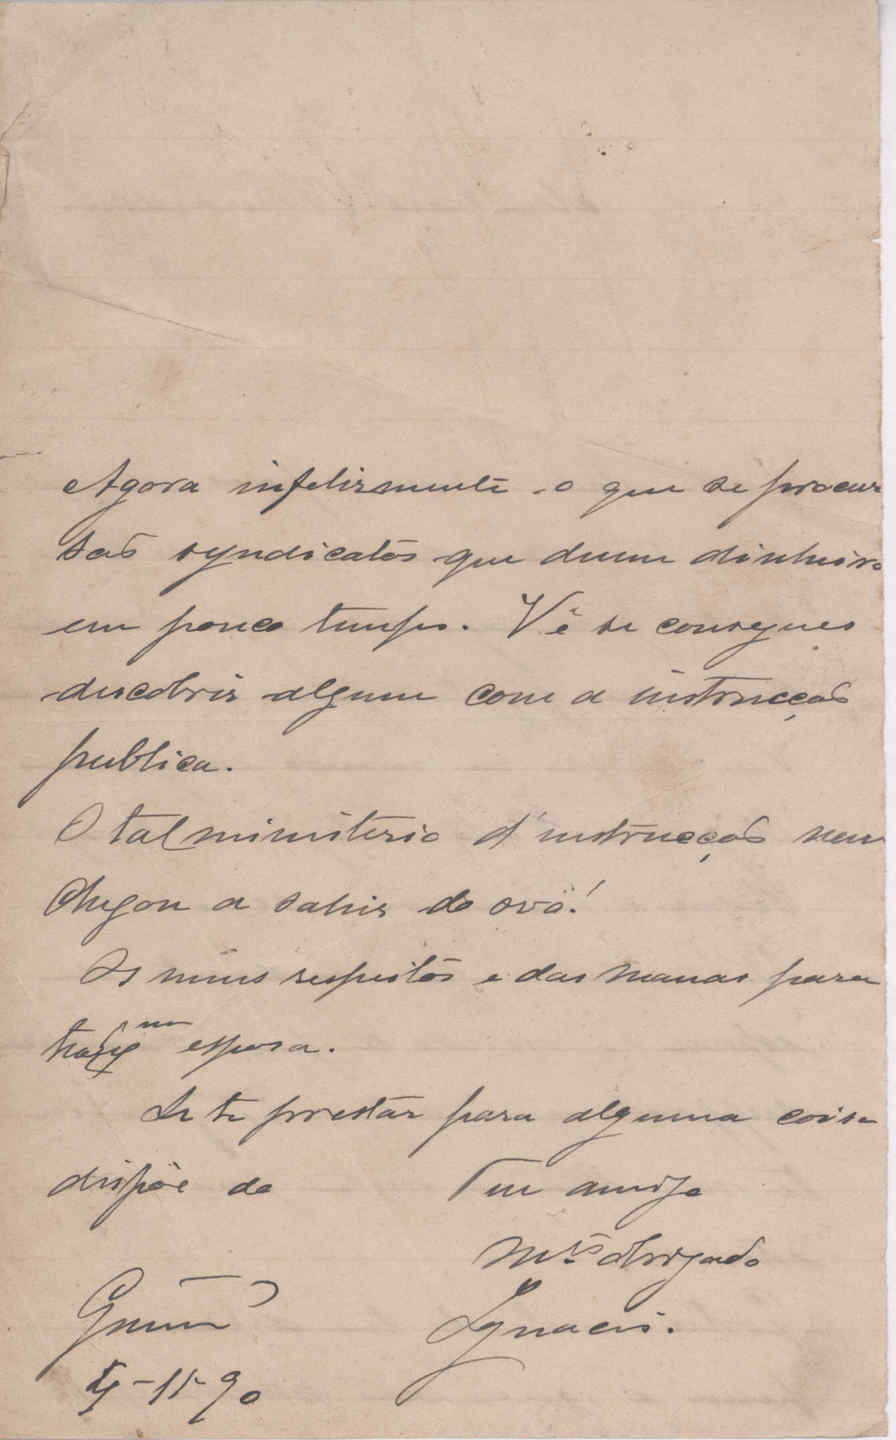 Agora infelizmente o que se procura
são syndicatos que deem dinheiro
em pouco tempo. Vê se consegues
descobrir algum com a instrucção
publica.
O tal ministerio d'instrucção nem
chegou a sahir do ovo!
Os meus respeitos e das manas para
esposa.
Se te prestar para alguma coisa
dispõe do Teu amigo
mto obrigado
Guim Ignacio.
11-90